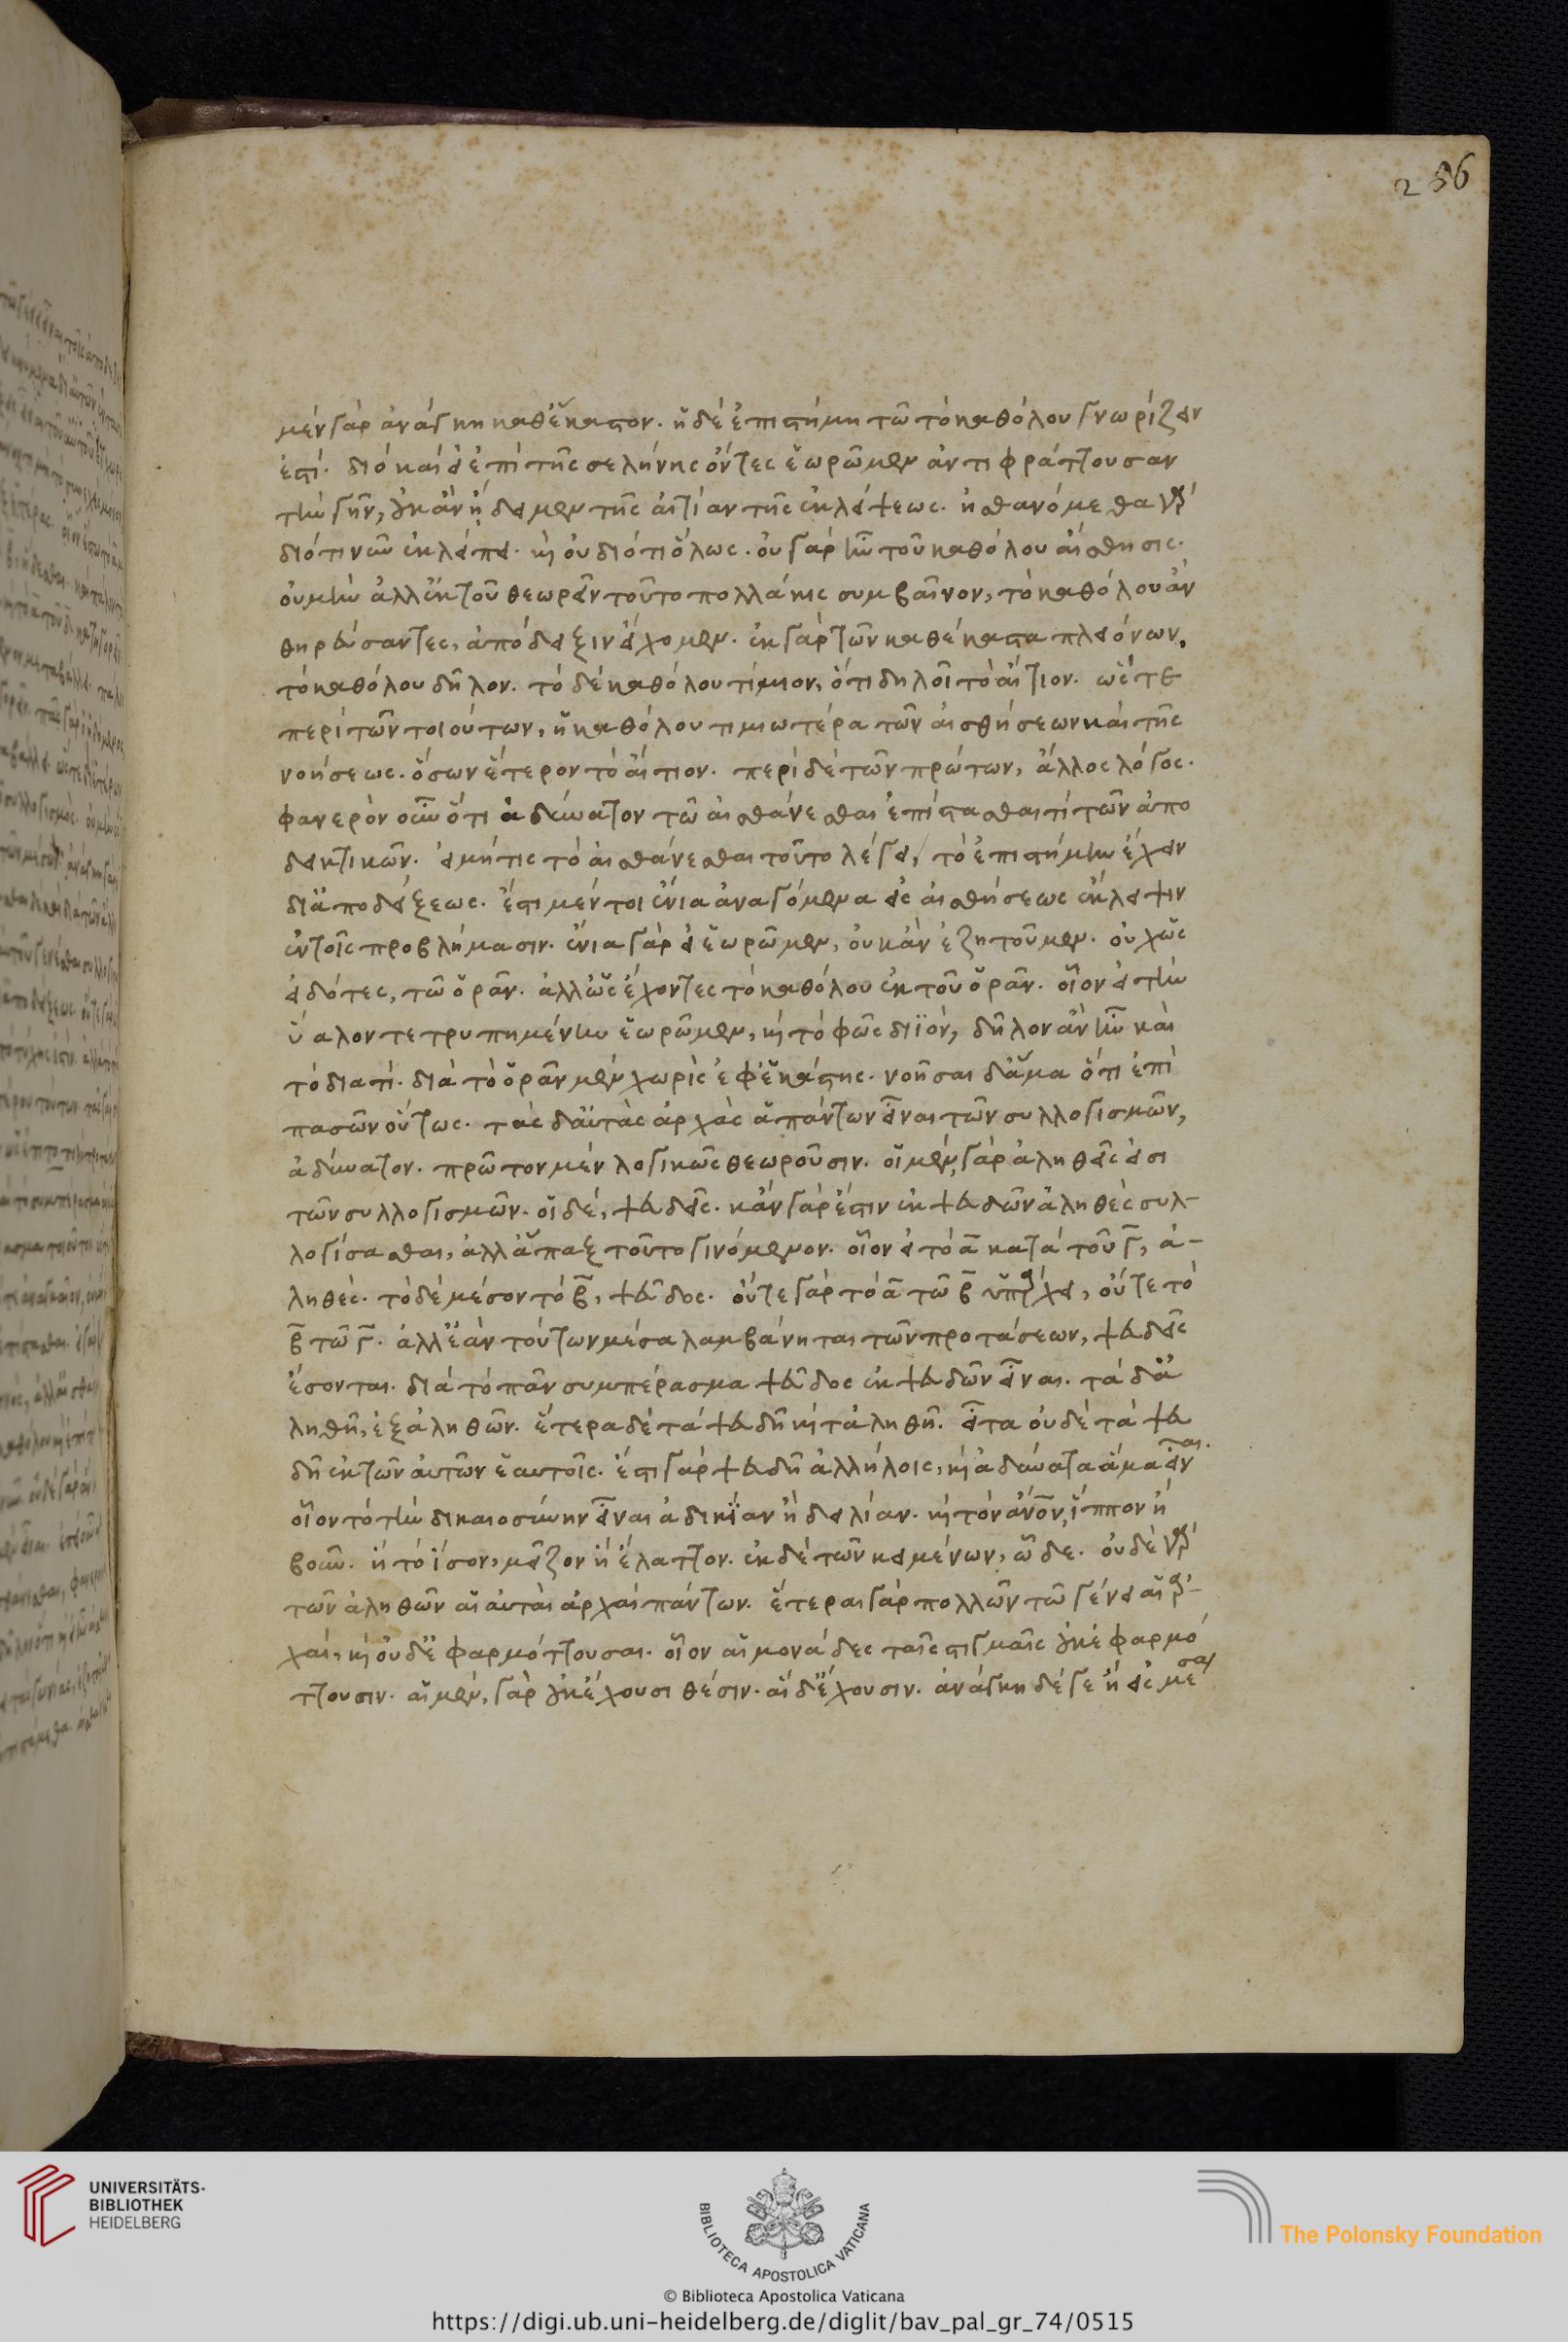 256
μὲν γὰρ ἀνάγκη καθ' ἕκαστον. ἡ δὲ ἐπιστήμη τῶ τὸ καθόλου γνωρίζειν
ἐστί. διὸ καὶ εἰ ἐπὶ τῆς σελήνης ὄντες ἑωρῶμεν ἀντιφράττουσαν
τὴν γῆν, οὐκ ἂν ᾔδειμεν τῆς αἰτίαν τῆς ἐκλείψεως. ἠσθανόμεθα γὰρ
διότι νῦν ἐκλείπει. καὶ οὐ διότι ὅλως. οὐ γὰρ ἦν τοῦ καθόλου αἴσθησις.
οὐ μὴν ἀλλ' ἐκ τοῦ θεωρεῖν τοῦτο πολλάκις συμβαῖνον, τὸ καθόλου ἂν
θηρεύσαντες, ἀπόδειξιν εἴχομεν. ἐκ γὰρ τῶν καθέκαστα πλειόνων,
τὸ καθόλου δῆλον. τὸ δὲ καθόλου τίμιον, ὅτι δηλοῖ τὸ αἴτιον. ὥστε
περὶ τῶν τοιούτων, ἡ καθόλου τιμιωτέρα τῶν αἰσθήσεων καὶ τῆς
νοήσεως. ὅσων ἕτερον τὸ αἴτιον. περὶ δὲ τῶν πρώτων, ἄλλος λόγος.
φανερὸν οὖν ὅτι ἀδύνατον τῶ αἰσθάνεσθαι ἐπίστασθαι τί τῶν ἀπο
δεικτικῶν. εἰ μή τις τὸ αἰσθάνεσθαι τοῦτο λέγει, τὸ ἐπιστήμην ἔχειν
δι' ἀποδείξεως. ἔστι μέντοι ἔνια ἀναγόμενα εἰς αἰσθήσεως ἔκλειψιν
ἐν τοῖς προβλήμασιν. ἔνια γὰρ εἰ ἑωρῶμεν, οὐκ ἂν ἐζητοῦμεν. οὐχ ὡς
εἰδότες, τῶ ὁρᾶν. ἀλλ' ὡς ἔχοντες τὸ καθόλου ἐκ τοῦ ὁρᾶν. οἷον εἰ τὴν
ὕαλον τετρυπημένην ἑωρῶμεν, καὶ τὸ φῶς διϊὸν, δῆλον ἂν ἦν καὶ
τὸ διατί. διὰ τὸ ὁρᾶν μὲν χωρὶς ἐφ' ἑκάστης. νοῆσαι δ' ἅμα ὅτι ἐπὶ
πασῶν οὕτως. τὰς δ' αὐτὰς ἀρχὰς ἁπάντων εἶναι τῶν συλλογισμῶν,
ἀδύνατον. πρῶτον μὲν λογικῶς θεωροῦσιν. οἱ μὲν γὰρ ἀληθεῖς εἰσι
τῶν συλλογισμῶν. οἱ δὲ, ψευδεῖς. κἂν γὰρ ἔστιν ἐκ ψευδῶν ἀληθὲς συλ-
λογίσασθαι, ἀλλ' ἅπαξ τοῦτο γινόμενον. οἷον εἰ τὸ α κατὰ τοῦ γ, ἀ-
ληθές. τὸ δὲ μέσον τὸ β, ψεῦδος. οὔτε γὰρ τὸ α τῶ β ὑπάρχει, οὔτε τὸ
β τῶ γ. ἀλλ' ἐὰν τούτων μέσα λαμβάνηται τῶν προτάσεων, ψευδεῖς
ἔσονται. διὰ τὸ πᾶν συμπέρασμα ψεῦδος ἐκ ψευδῶν εἶναι. τὰ δ' ἀ
ληθῆ, ἐξ ἀληθῶν. ἕτερα δὲ τὰ ψευδῆ καὶ τἀληθῆ. εἶτα οὐδὲ τὰ ψευ
δῆ ἐκ τῶν αὐτῶν ἑαυτοῖς. ἔστι γὰρ ψευδῆ ἀλλήλοις, καὶ ἀδύνατα ἅμα εἶναι.
οἷον τὸ τὴν δικαιοσύνην εἶναι ἀδικίαν ἢ δειλίαν. καὶ τὸν ἄνον, ἵππον ἢ
βοῦν. ἢ τὸ ἴσον, μεῖζον ἢ ἔλαττον. ἐκ δὲ τῶν κειμένων, ὧδε. οὐδὲ γὰρ
τῶν ἀληθῶν αἱ αὐταὶ ἀρχαὶ πάντων. ἕτεραι γὰρ πολλῶν τῶ γένει αἱ ἀρ-
χαί, καὶ οὐδ' ἐφαρμόττουσαι. οἷον αἱ μονάδες ταῖς στιγμαῖς οὐκ ἐφαρμό
ττουσιν. αἱ μὲν, γὰρ οὐκ ἔχουσι θέσιν. αἱ δ' ἔχουσιν. ἀνάγκη δέ γε ἢ εἰς μέσα
UNIVERSITÄTS-
BIBLIOTHEK
HEIDELBERG
BIBLIOTECA APOSTOLICA VATICANA
The Polonsky Foundation
© Biblioteca Apostolica Vaticana
https://digi.ub.uni-heidelberg.de/diglit/bav_pal_gr_74/0515